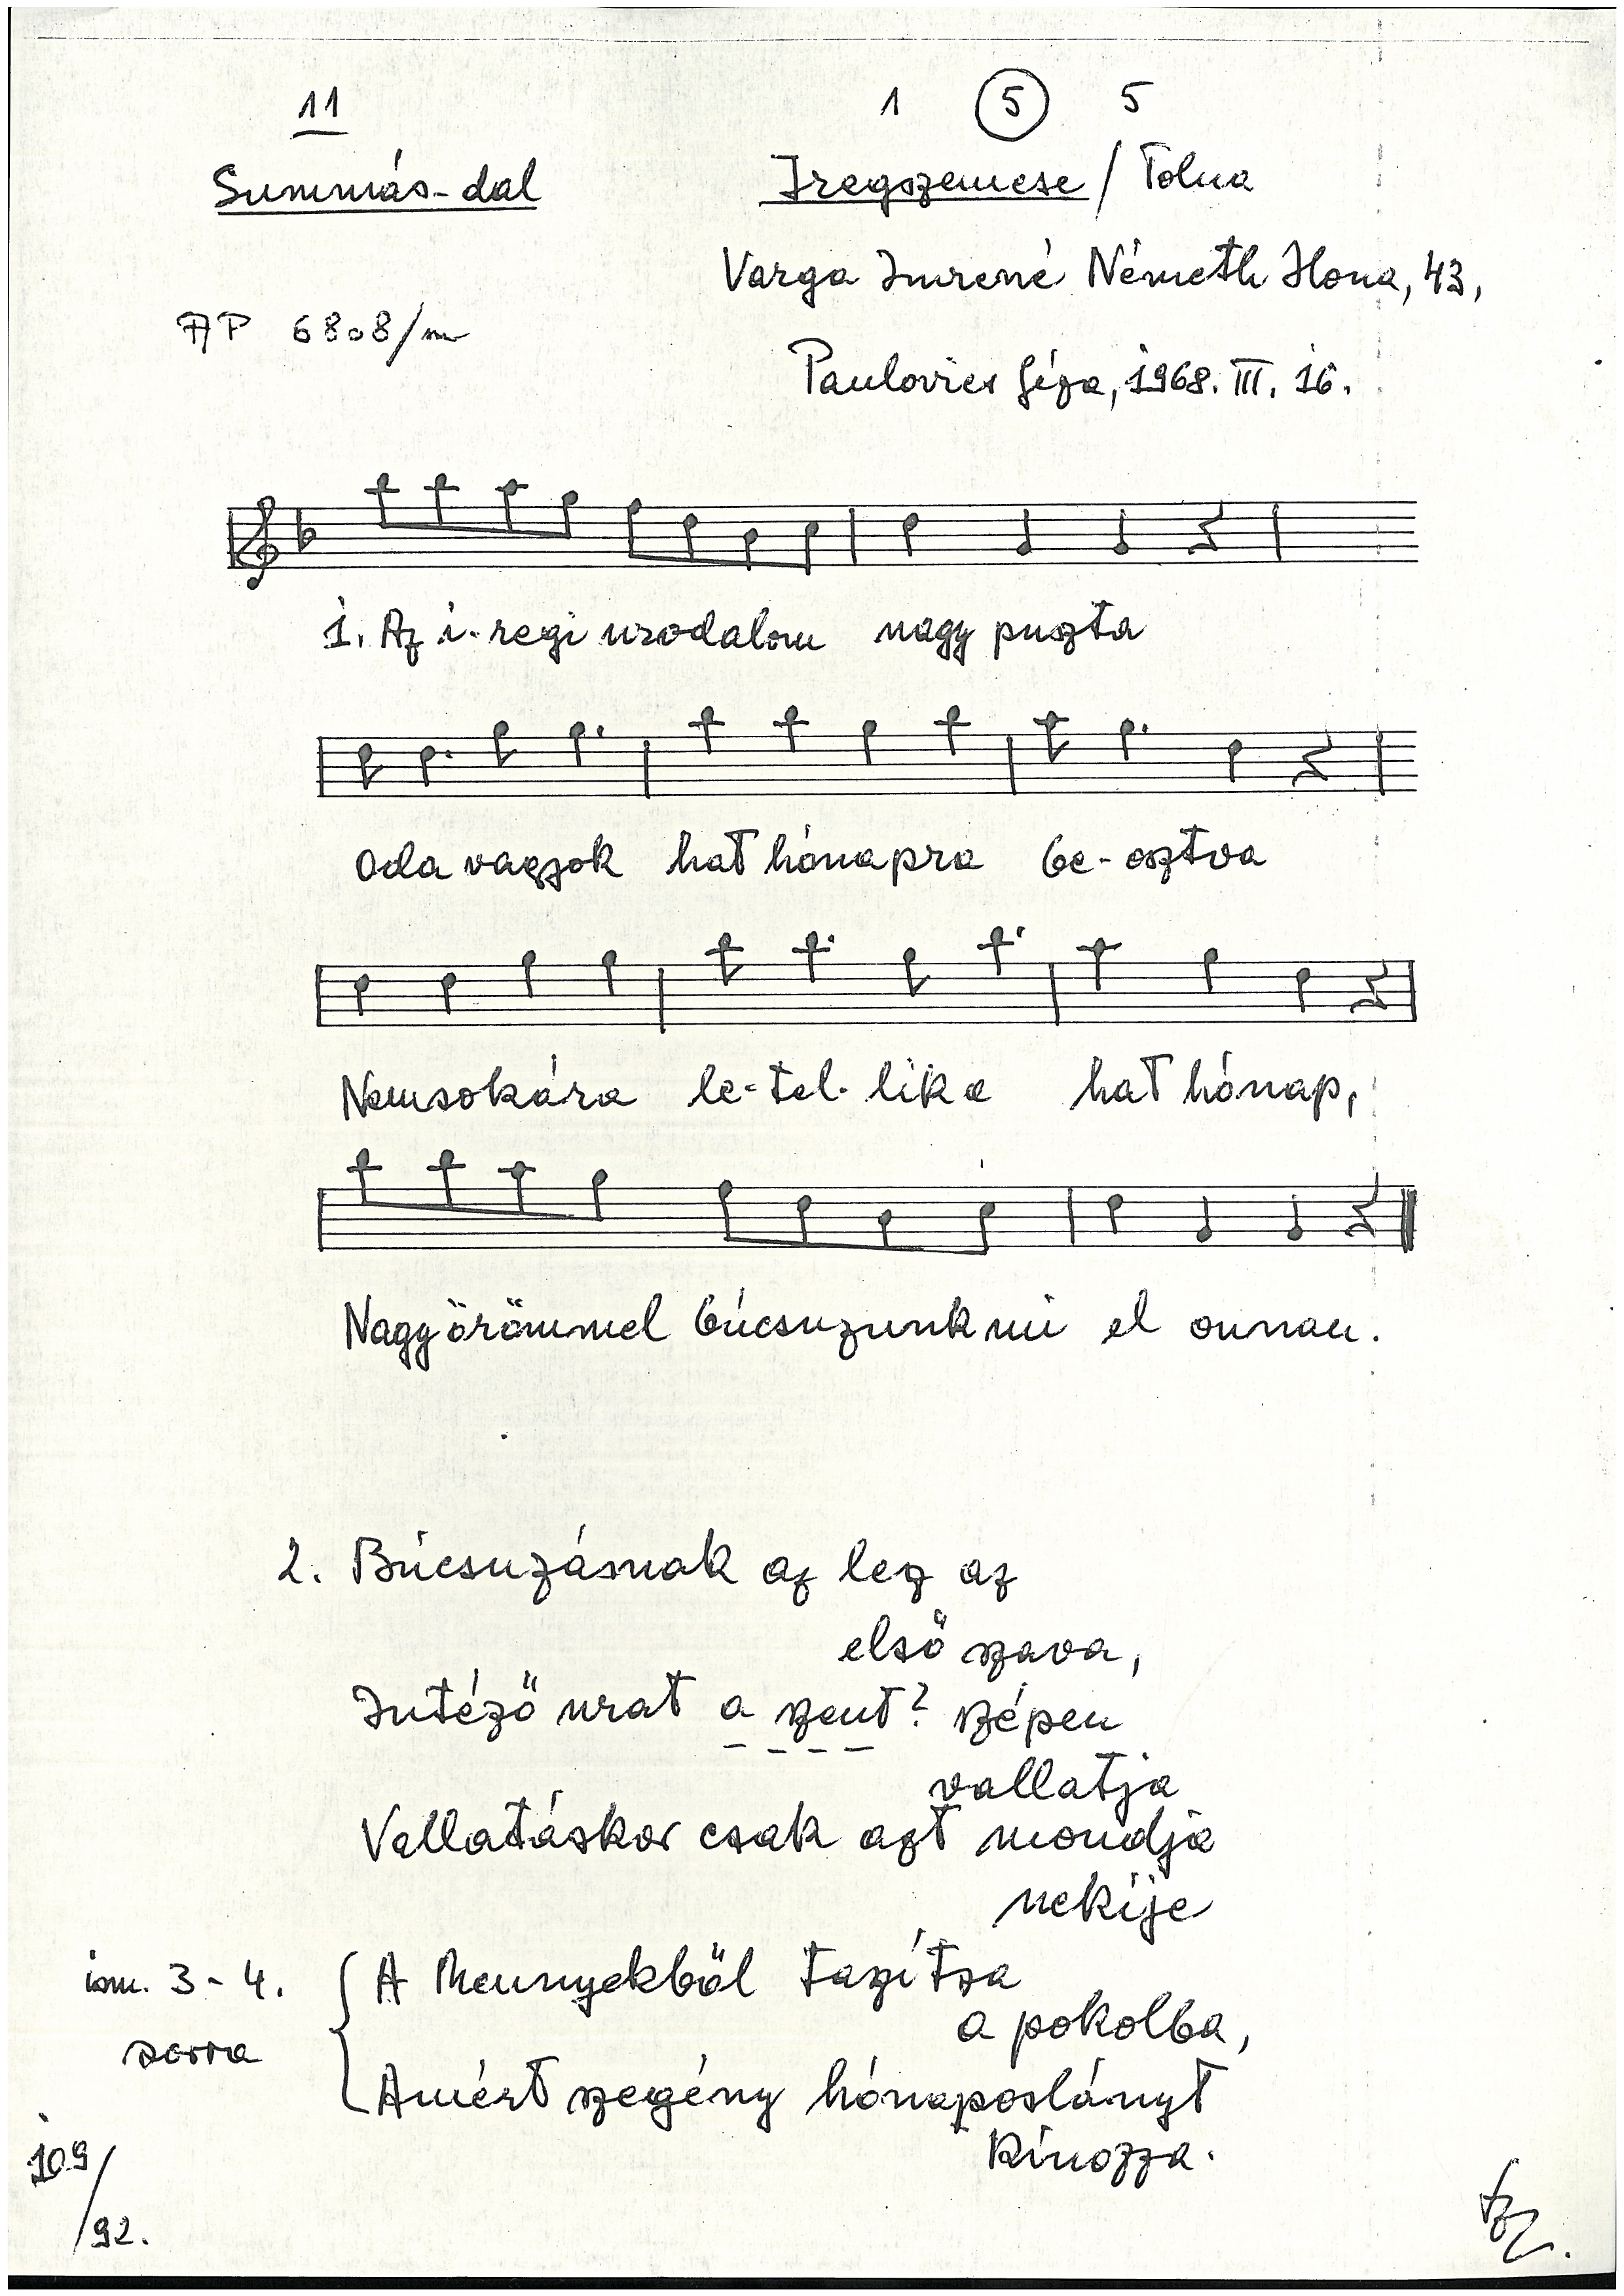 11
1 5 5
Summás-dal
Iregszemcse / Tolna
Varga Imrené Németh Ilona, 43,
AP 6808/m
Paulovics Géza, 1968. III. 16.
1. Az i-regi urodalom nagy puszta
Oda vagyok hat hónapra be-osztva
Nemsokára le-tel-lik a hat hónap,
Nagy örömmel búcsuzunk mi el onnan.
2. Búcsuzásnak az lesz az
első szava,
Intéző urat a szent? szépen
vallatja
Vallatáskor csak azt mondja
nekije
ism. 3-4.
sorra
A Mennyekből taszítsa
a pokolba,
Amért szegény hónaposlányt
kínozza.
109/92.